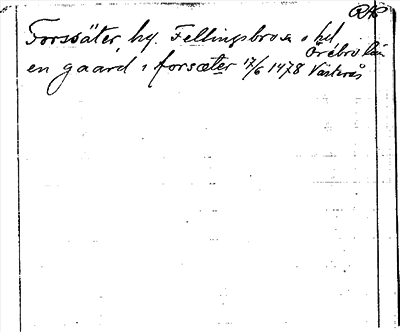 RAP
Forssäter, by. Fellingsbro sn o hd
Örebro län
en gaard i forsæter 17/6 1478 Västerås